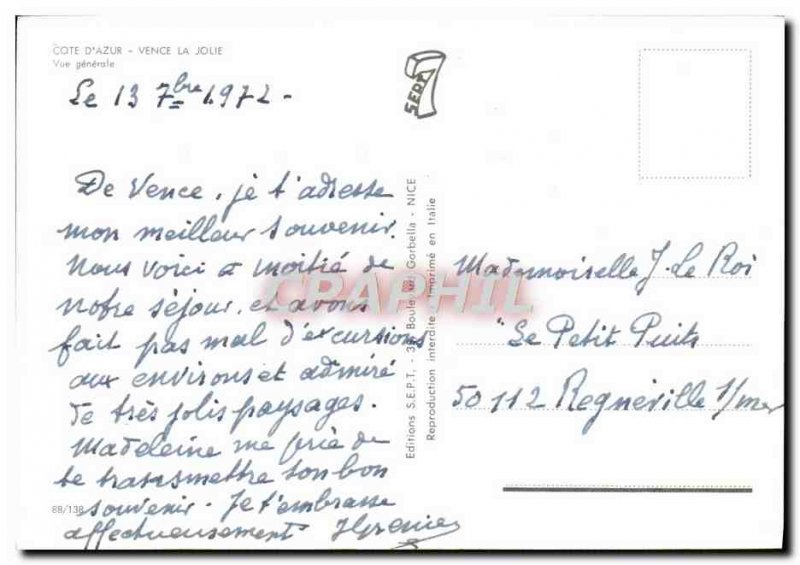 COTE D'AZUR - VENCE LA JOLIE
Vue générale
Le 13 7bre 1972 -
SEPT
De Vence, je t'adresse
mon meilleur souvenir.
Nous voici à moitié de
notre séjour, et avons
fait pas mal d'excursions
aux environs et admiré
de très jolis paysages.
Madeleine me prie de
te transmettre son bon
souvenir. Je t'embrasse
affectueusement
88/138
Editions S.E.P.T. - Boulevard Gorbella - NICE
Reproduction interdite - Imprimé en Italie
CPAPHIL
Mademoiselle J. Le Roi
"Le Petit Puits
50112 Regnéville s/mer